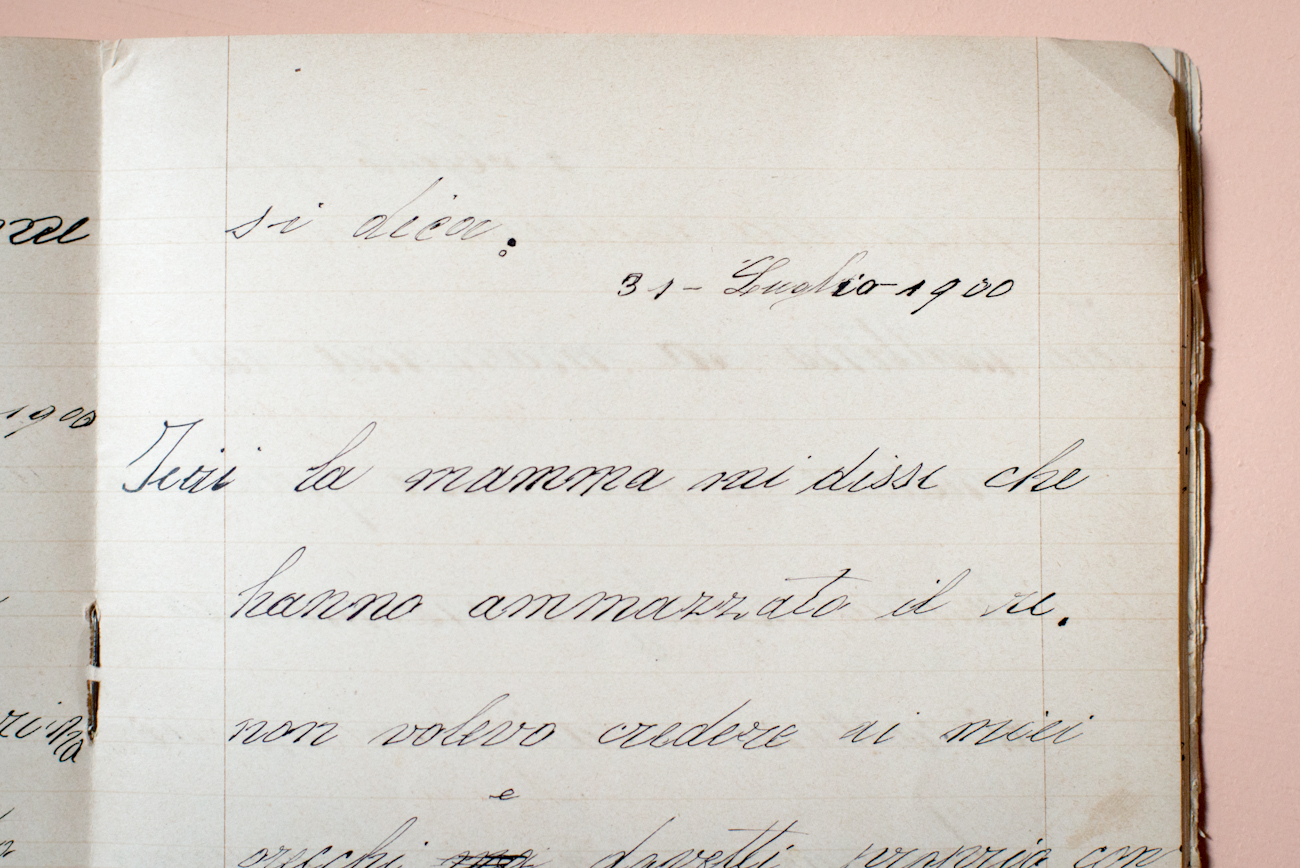 si dica.
31 - Luglio - 1900
Ieri la mamma mi disse che
hanno ammazzato il re.
non volevo credere ai miei
e
orecchi dovetti proprio con
1900